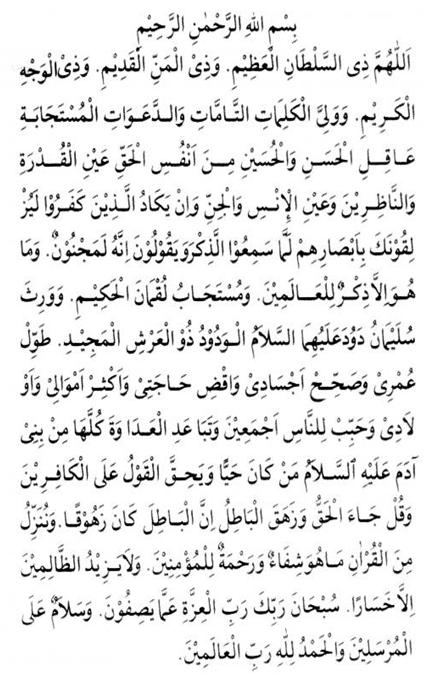 بِسْمِ اللهِ الرَّحْمٰنِ الرَّحِيْمِ
اَللّٰهُمَّ ذِى السُّلْطَانِ الْعَظِيْمِ. وَذِى الْمَنِّ الْقَدِيْمِ. وَذِى الْوَجْهِ
الْكَرِيْمِ. وَوَلِىِّ الْكَلِمَاتِ التَّامَّاتِ وَالدَّعَوَاتِ الْمُسْتَجَابَةِ
عَاقِلِ الْحَسَنِ وَالْحُسَيْنِ مِنَ اَنْفُسِ الْحَقِّ عَيْنِ الْقُدْرَةِ
وَالنَّاظِرِيْنَ وَعَيْنِ الْاِنْسِ وَالْجِنِّ وَاِنْ يَكَادُ الَّذِيْنَ كَفَرُوْا لَيُزْ
لِقُوْنَكَ بِاَبْصَارِهِمْ لَمَّا سَمِعُوا الذِّكْرَ وَيَقُوْلُوْنَ اِنَّهُ لَمَجْنُوْنٌ. وَمَا
هُوَ اِلَّا ذِكْرٌ لِلْعَالَمِيْنَ. وَمُسْتَجَابُ لُقْمَانَ الْحَكِيْمِ. وَوَرِثَ
سُلَيْمَانُ دَاوُدَ عَلَيْهِمَا السَّلَامُ الْوَدُوْدُ ذُو الْعَرْشِ الْمَجِيْدِ. طَوِّلْ
عُمْرِىْ وَصَحِّحْ اَجْسَادِىْ وَاقْضِ حَاجَتِىْ وَاَكْثِرْ اَمْوَالِىْ وَاَوْ
لَادِىْ وَحَبِّبْ لِلنَّاسِ اَجْمَعِيْنَ وَتَبَاعَدِ الْعَدَاوَةَ كُلَّهَا مِنْ بَنِىْ
آدَمَ عَلَيْهِ السَّلَامُ مَنْ كَانَ حَيًّا وَيَحِقَّ الْقَوْلُ عَلَى الْكَافِرِيْنَ
وَقُلْ جَاءَ الْحَقُّ وَزَهَقَ الْبَاطِلُ اِنَّ الْبَاطِلَ كَانَ زَهُوْقًا. وَنُنَزِّلُ
مِنَ الْقُرْاٰنِ مَا هُوَ شِفَاءٌ وَرَحْمَةٌ لِلْمُؤْمِنِيْنَ. وَلَا يَزِيْدُ الظَّالِمِيْنَ
اِلَّا خَسَارًا. سُبْحَانَ رَبِّكَ رَبِّ الْعِزَّةِ عَمَّا يَصِفُوْنَ. وَسَلَامٌ عَلَى
الْمُرْسَلِيْنَ وَالْحَمْدُ لِلّٰهِ رَبِّ الْعَالَمِيْنَ.